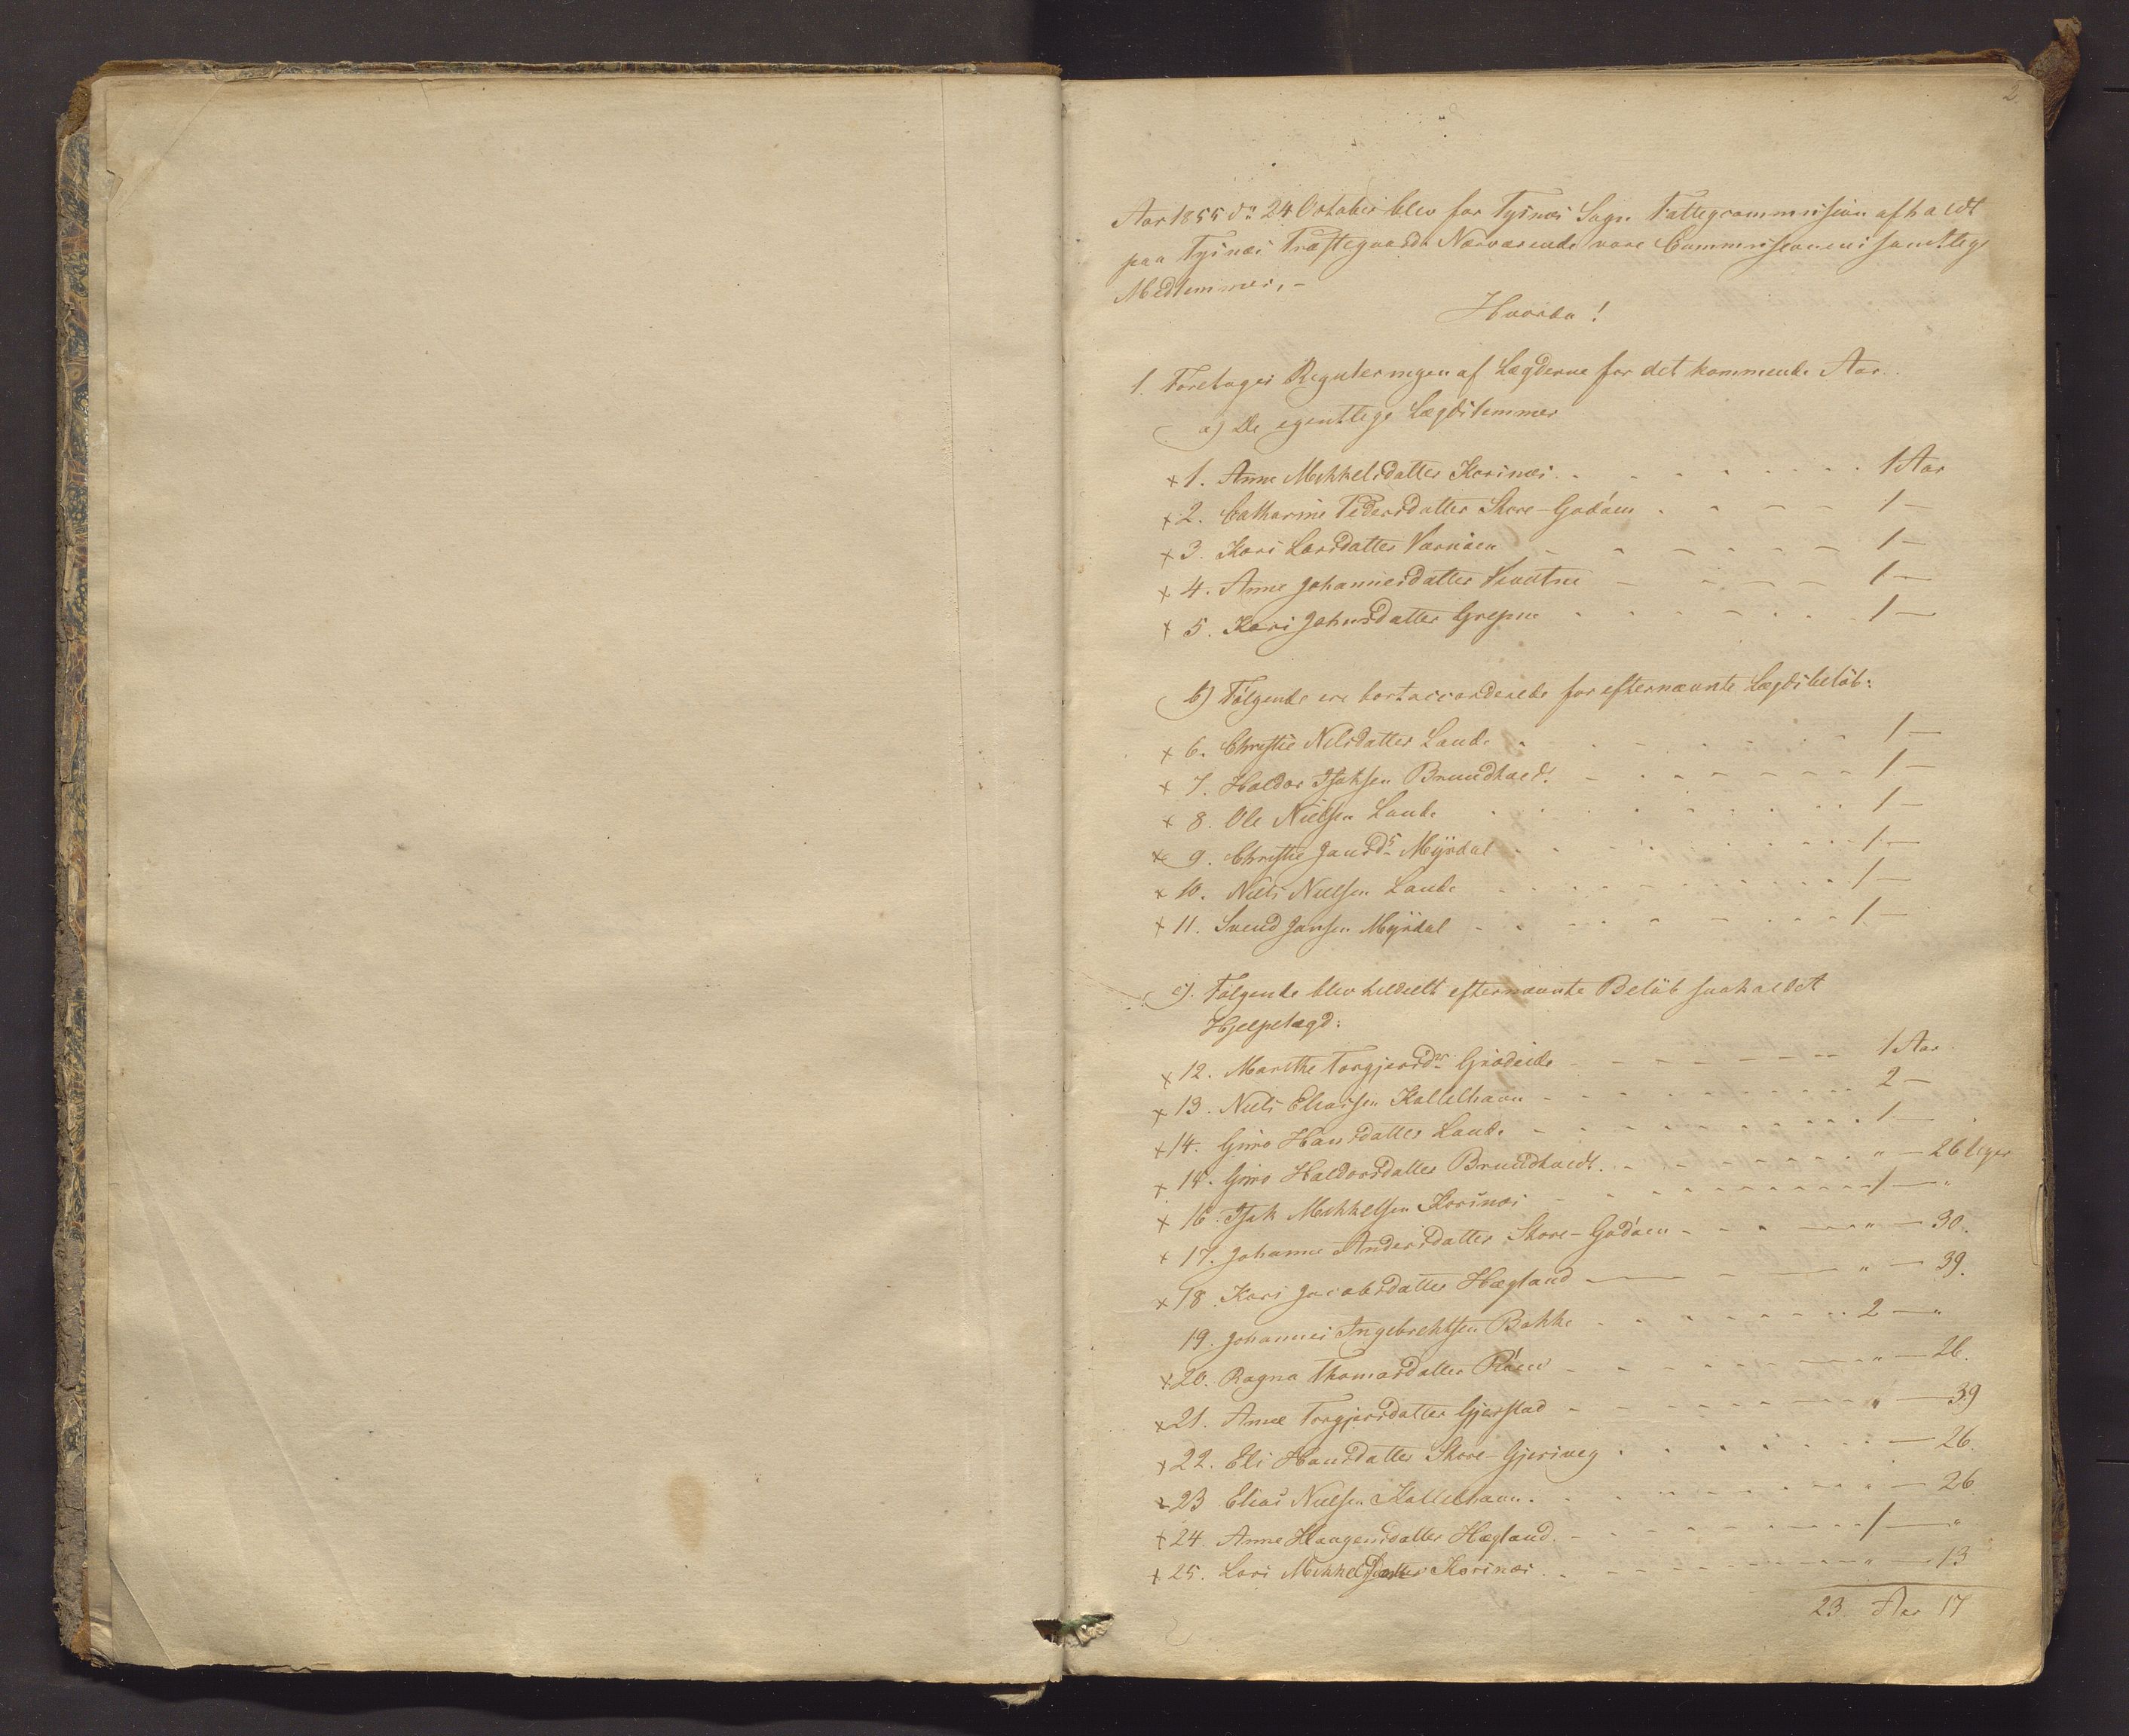 2.
Aar 1855 dn 24 October blev for Tysnæs Sogn Fattigcommission afholdt
paa Tysnæs Præstegaard. Nærværende vare Commissionens samtlige
Medlemmer. -
Hvorda!
1. Foretages Reguleringen af Lægderne for det kommende Aar.
a) De egentlige Lægdslemmer
x 1. Anne Mikkelsdatter Korsnæs - - - 1 Aar
x 2. Catharine Pedersdatter Store-Godøen - - - 1 -
x 3. Kari Larsdatter - - - 1 -
x 4. Anne Johannesdatter - - - 1 -
x 5. Kari Johnsdatter - - - 1 -
b) Følgende ere bortaccorderede for efternævnte Lægdsbeløb:
x 6. Christie Nilsdatter Lande - - - 1 -
x 7. Haldor Isaksen Brundtvedt - - - 1 -
x 8. Ole Nielsen Lande - - - 1 -
x 9. Christie Jansdr Myrdal - - - 1 -
x 10. Niels Nielsen Lande - - - 1 -
x 11. Svend Jansen Myrdal - - - 1 -
c). Følgende blev tildeelt efternævnte Beløb saakaldet
Hjelpelægd:
x 12. Marthe Torgjersdr Gjødeide - - - 1 Aar
x 13. Niels Eliassen Kattelhavn - - - 2 -
x 14. Giøro Hansdatter Lande - - - 1 -
x 15. Giøro Haldorsdatter Brundtvedt - - - " - 26 Uger
x 16. Isak Mikkelsen Korsnæs - - - 1 - "
x 17. Johanne Andersdatter Store-Godøen - - - " - 30.
x 18. Kari Jacobsdatter Hægland - - - " - 39.
19. Johannes Ingebrehtsen Bakke - - - 2 - "
x 20. Ragna Thomasdatter Røen - - - " - 26.
x 21. Anne Torgjersdatter Gjerstad - - - " - 39
x 22. Eli Hansdatter Store-Gjersvig - - - 26.
x 23 Elias Nielsen Kattelhavn. - - - " - 26
x 24. Anne Haagensdatter Hægland. - - - 1 - "
x 25. Lars Mikkelsen Korsnæs - - - " - 13
23. Aar 17